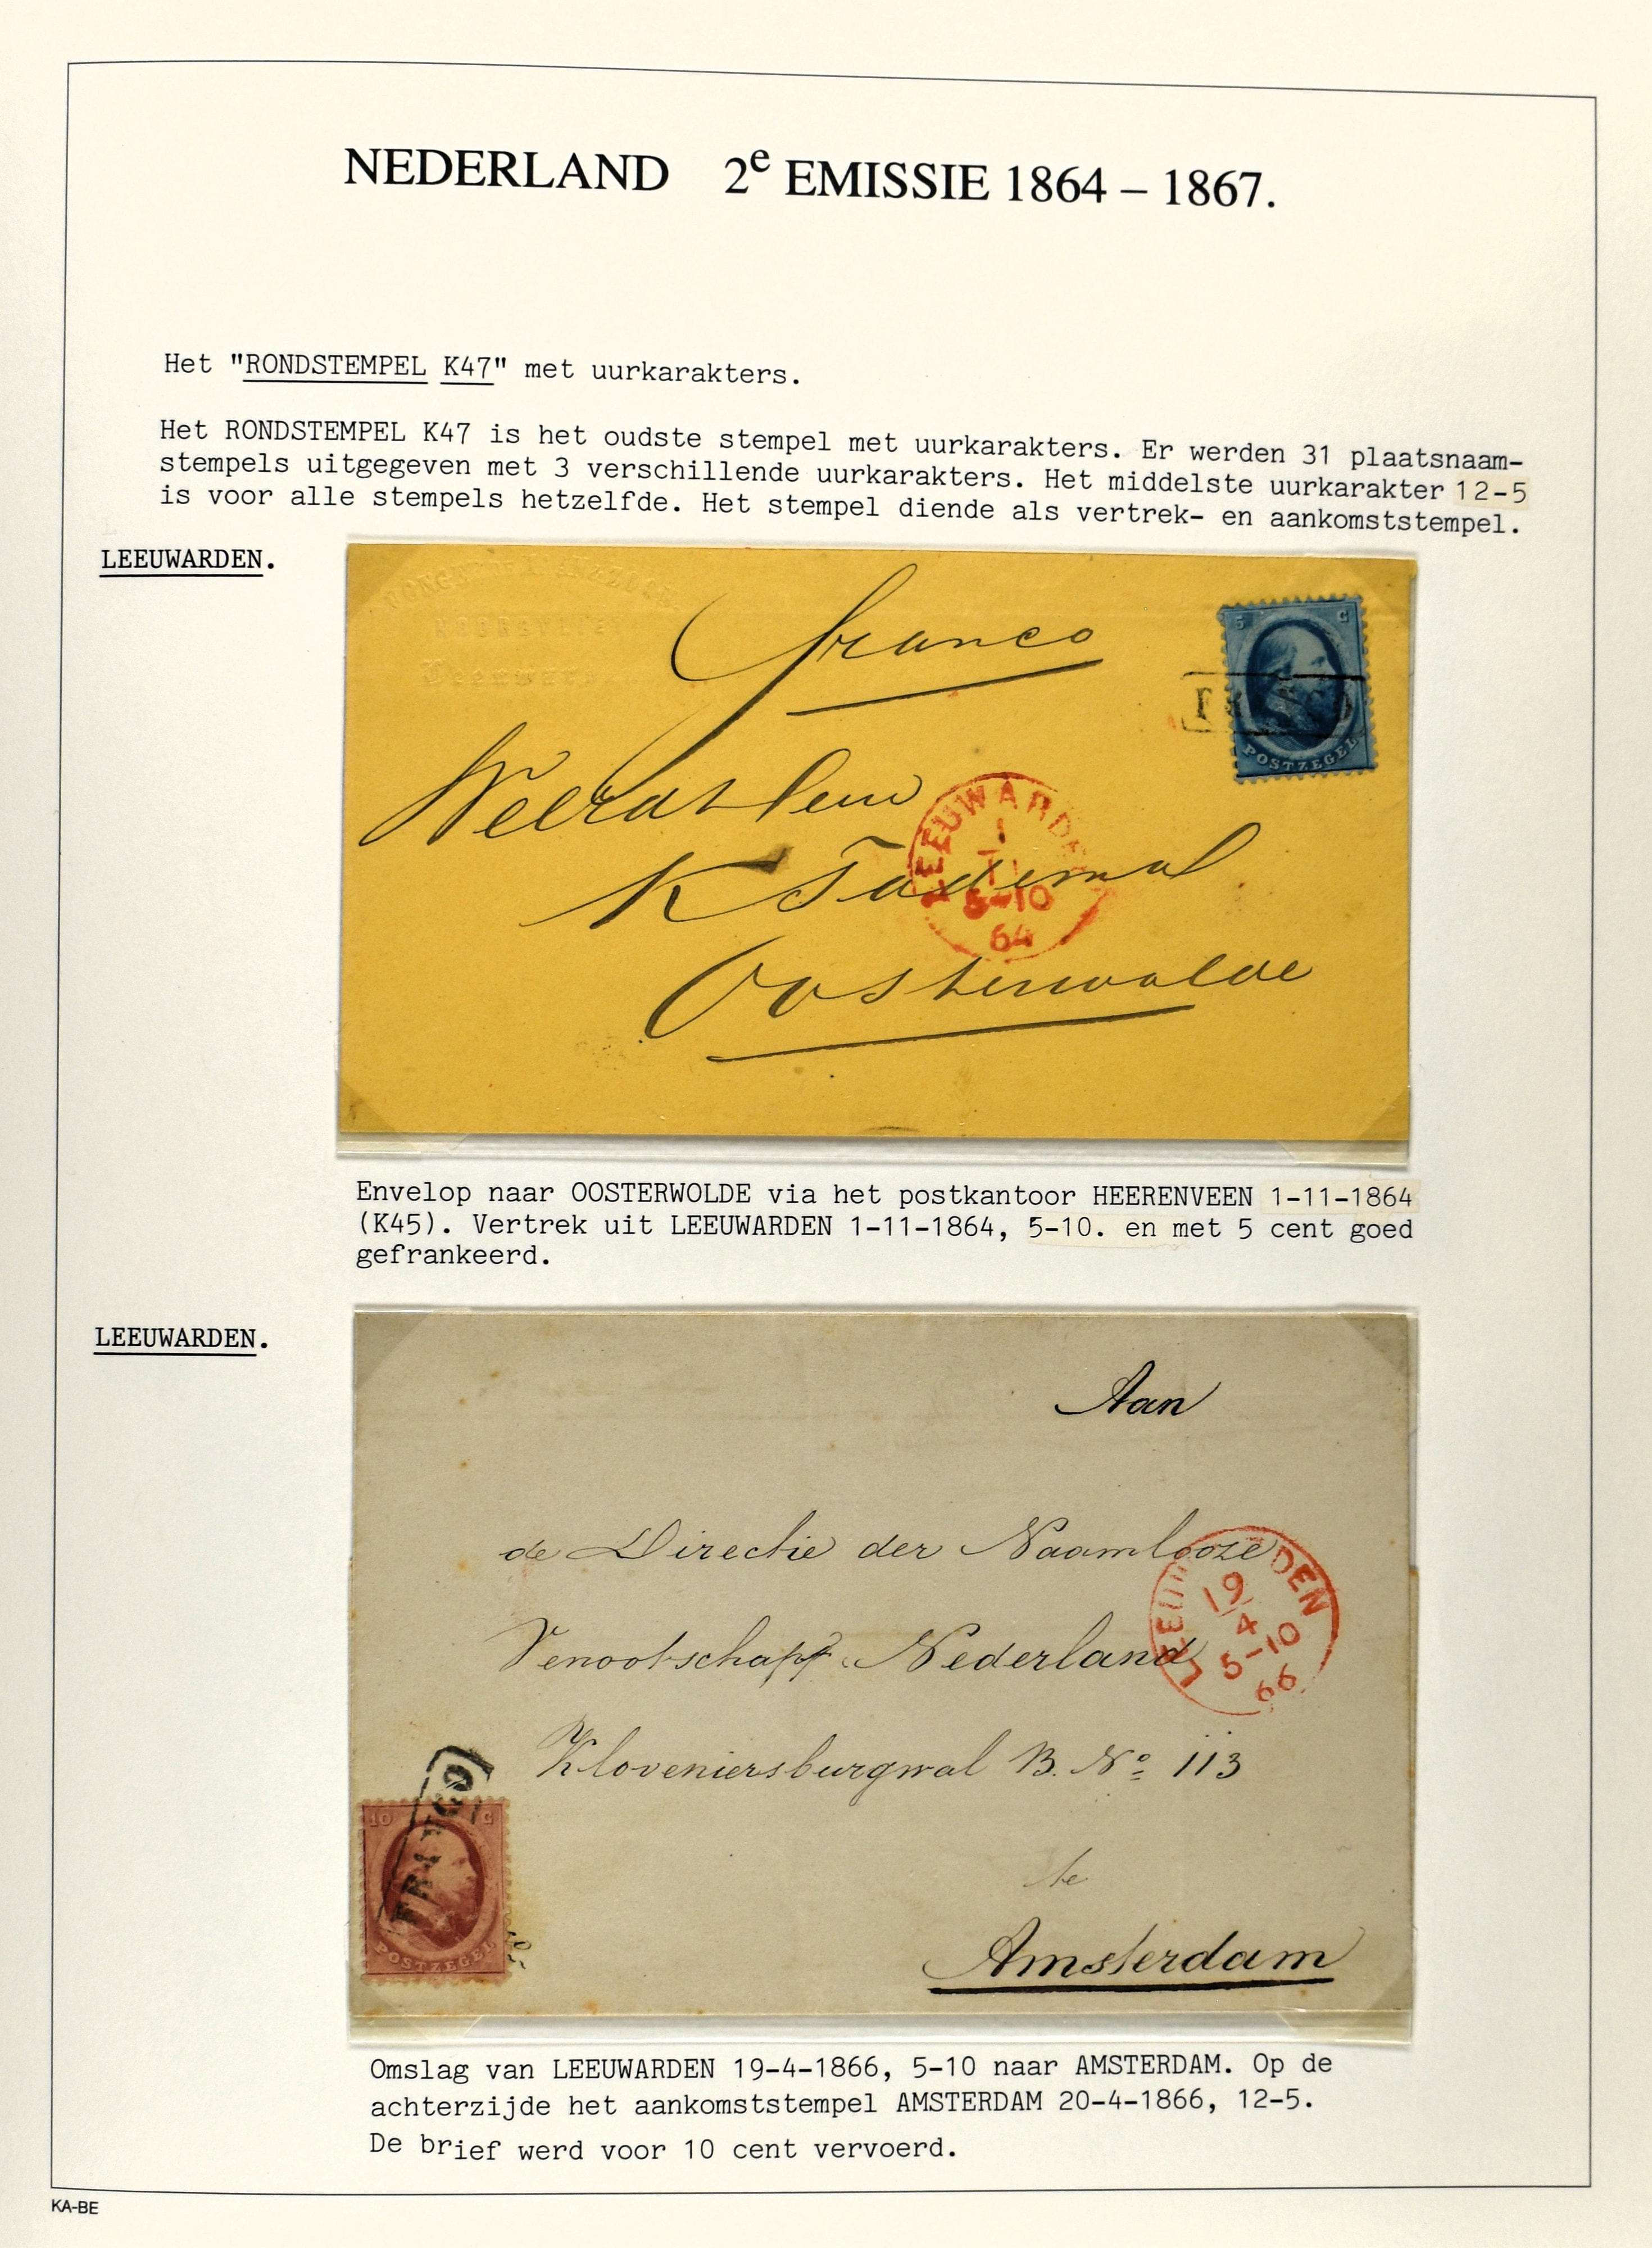 NEDERLAND 2e EMISSIE 1864 – 1867.
Het "RONDSTEMPEL K47" met uurkarakters.
Het RONDSTEMPEL K47 is het oudste stempel met uurkarakters. Er werden 31 plaatsnaam-
stempels uitgegeven met 3 verschillende uurkarakters. Het middelste uurkarakter 12-5
is voor alle stempels hetzelfde. Het stempel diende als vertrek- en aankomststempel.
LEEUWARDEN.
franco
5 C
POSTZEGEL
LEEUWARDE
1
11
5-10
64
K Tademal
Oosterwolde
Envelop naar OOSTERWOLDE via het postkantoor HEERENVEEN 1-11-1864
(K45). Vertrek uit LEEUWARDEN 1-11-1864, 5-10. en met 5 cent goed
gefrankeerd.
LEEUWARDEN.
Aan
de Directie der Naamlooze
Venootschapp Nederland
LEEU DEN
19
4
5-10
66
Kloveniersburgwal B. No 113
te
Amsterdam
FRANCO
10 C
POSTZEGEL
Omslag van LEEUWARDEN 19-4-1866, 5-10 naar AMSTERDAM. Op de
achterzijde het aankomststempel AMSTERDAM 20-4-1866, 12-5.
De brief werd voor 10 cent vervoerd.
KA-BE